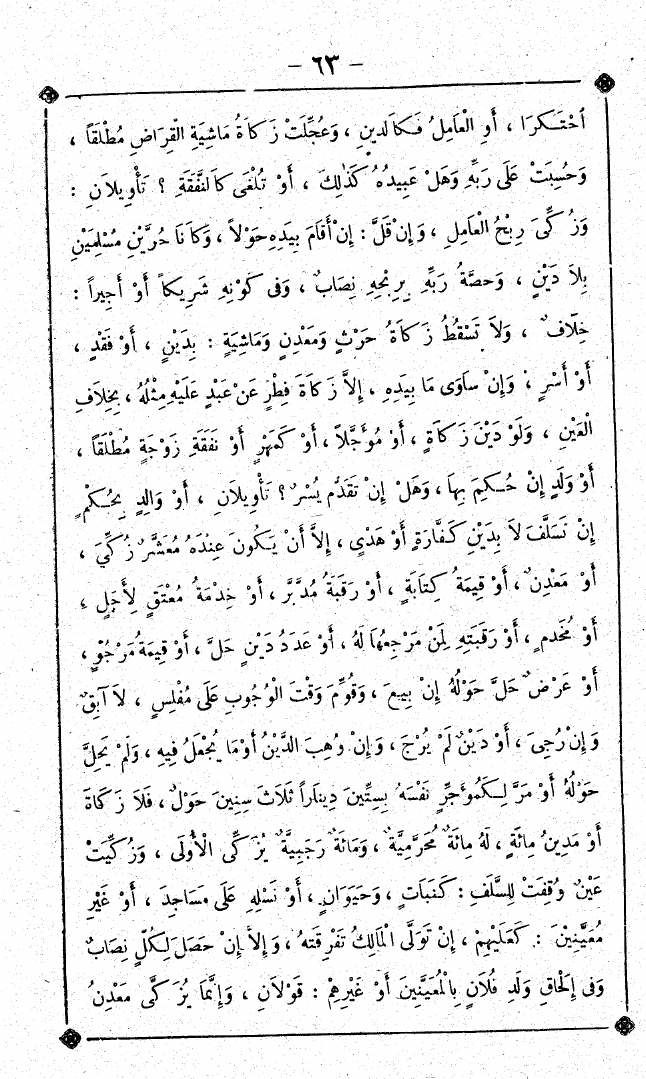 – ٦٣ –
اُحْتَكَرَا ، أَوِ الْعَامِلُ فَكَالدَينِ ، وَعُجِّلَتْ زَكَاةُ مَاشِيَةِ الْقِرَاضِ مُطْلَقاً ،
وَحُسِبَتْ عَلَى رَبِّهِ وَهَلْ عَبِيدُهُ كَذٰلِكَ ، أَوْ تُلْغَى كَالنَّفَقَةِ ؟ تَأْوِيلاَنِ :
وَزُكِّىَ رِبْحُ الْعَامِلِ ، وَإِنْ قَلَّ : إِنْ أَقَامَ بِيَدِهِ حَوْلاً ، وَكَانَا حُرَّيْنِ مُسْلِمَيْنِ
بِلاَ دَيْنٍ ، وَحِصَّةُ رَبِّهِ بِرِبْحِهِ نِصَابٌ ، وَفى كَوْنِهِ شَرِيكاً أَوْ أَجِيراً :
خِلَافٌ ، وَلاَ تَسْقُطُ زَكَاةُ حَرْثٍ وَمَعْدِنٍ وَمَاشِيَةٍ : بِدَيْنٍ ، أَوْ فَقْدٍ ،
أَوْ أَسْرٍ ؛ وَإِنْ سَاوَى مَا بِيَدِهِ ، إِلاَّ زَكَاةَ فِطْرٍ عَنْ عَبْدٍ عَلَيْهِ مِثْلُهُ ، بِخِلَافِ
الْعَيْنِ ، وَلَوْ دَيْنَ زَكَاةٍ ، أَوْ مُؤَجَّلاً ، أَوْ كَمَهْرٍ أَوْ نَفَقَةِ زَوْجَةٍ مُطْلَقاً ،
أَوْ وَلَدٍ إِنْ حُكِمَ بِهَا ، وَهَلْ إِنْ تَقَدَّم يُسْرٌ ؟ تَأْوِيلاَنِ ، أَوْ وَالِدٍ بِحُكْمٍ
إِنْ تَسَلَّفَ لاَ بِدَيْنِ كَفَّارَةٍ أَوْ هَدْىٍ ، إِلاَّ أَنْ يَكُونَ عِنْدَهُ مُعَشَّرٌ زُكِّيَ ،
أَوْ مَعْدِنٌ ، أَوْ قِيمَةُ كِتَابَةٍ ، أَوْ رَقَبَةُ مُدَبَّرٍ ، أَوْ خِدْمَةُ مُعْتَقٍ لِأَجَلٍ ،
أَوْ مُخْدَمٍ ، أَوْ رَقَبَتِهِ لِمَنْ مَرْجِعُهَا لَهُ ، أَوْ عَدَدُ دَيْنٍ حَلَّ ، أَوْ قِيمَةُ مَرْجُوٍّ ،
أَوْ عَرْضٌ حَلَّ حَوْلُهُ إِنْ بِيعَ ، وَقُوِّمَ وَقْتَ الْوُجُوبِ عَلَى مُفْلِسٍ ، لاَ آبِقٌ
وَإِنْ رُجِىَ ، أَوْ دَيْنٌ لَمْ يُرْجَ ، وَإِنْ وُهِبَ الدَّيْنُ أَوْ مَا يُجْعَلُ فِيهِ ، وَلَمْ يَحِلَّ
حَوْلُهُ أَوْ مَرَّ لِكَمُؤَجِّرٍ نَفْسَهُ بِسِتِّينَ دِينَاراً ثَلاَثَ سِنِينَ حَوْلٌ ، فَلاَ زَكَاةَ
أَوْ مَدِينُ مِائَةٍ ، لَهُ مِائَةٌ مُحَرَّمِيَّةٌ ، وَمَائَةٌ رَجَبِيَّةٌ يُزَكِّى الْأُولَى ، وَزُكِّيَتْ
عَيْنٌ وُقِفَتْ لِلسَّلَفِ : كَنَبَاتٍ ، وَحَيَوَانٍ ، أَوْ نَسْلِهِ عَلَى مَسَاجِدَ ، أَوْ غَيْرِ
مُعَيَّنِينَ : كَعَلَيْهِمْ ، إِنْ تَوَلَّى الْمَالِكُ تَفْرِقَتَهُ ، وَإِلاَّ إِنْ حَصَلَ لِكُلٍّ نِصَابٌ
وَفى إِلْحَاقِ وَلَدِ فُلاَنٍ بِالْمُعَيَّنِينَ أَوْ غَيْرِهِمْ : قَوْلاَنِ ، وَإِنَّمَا يُزَكَّى مَعْدِنُ